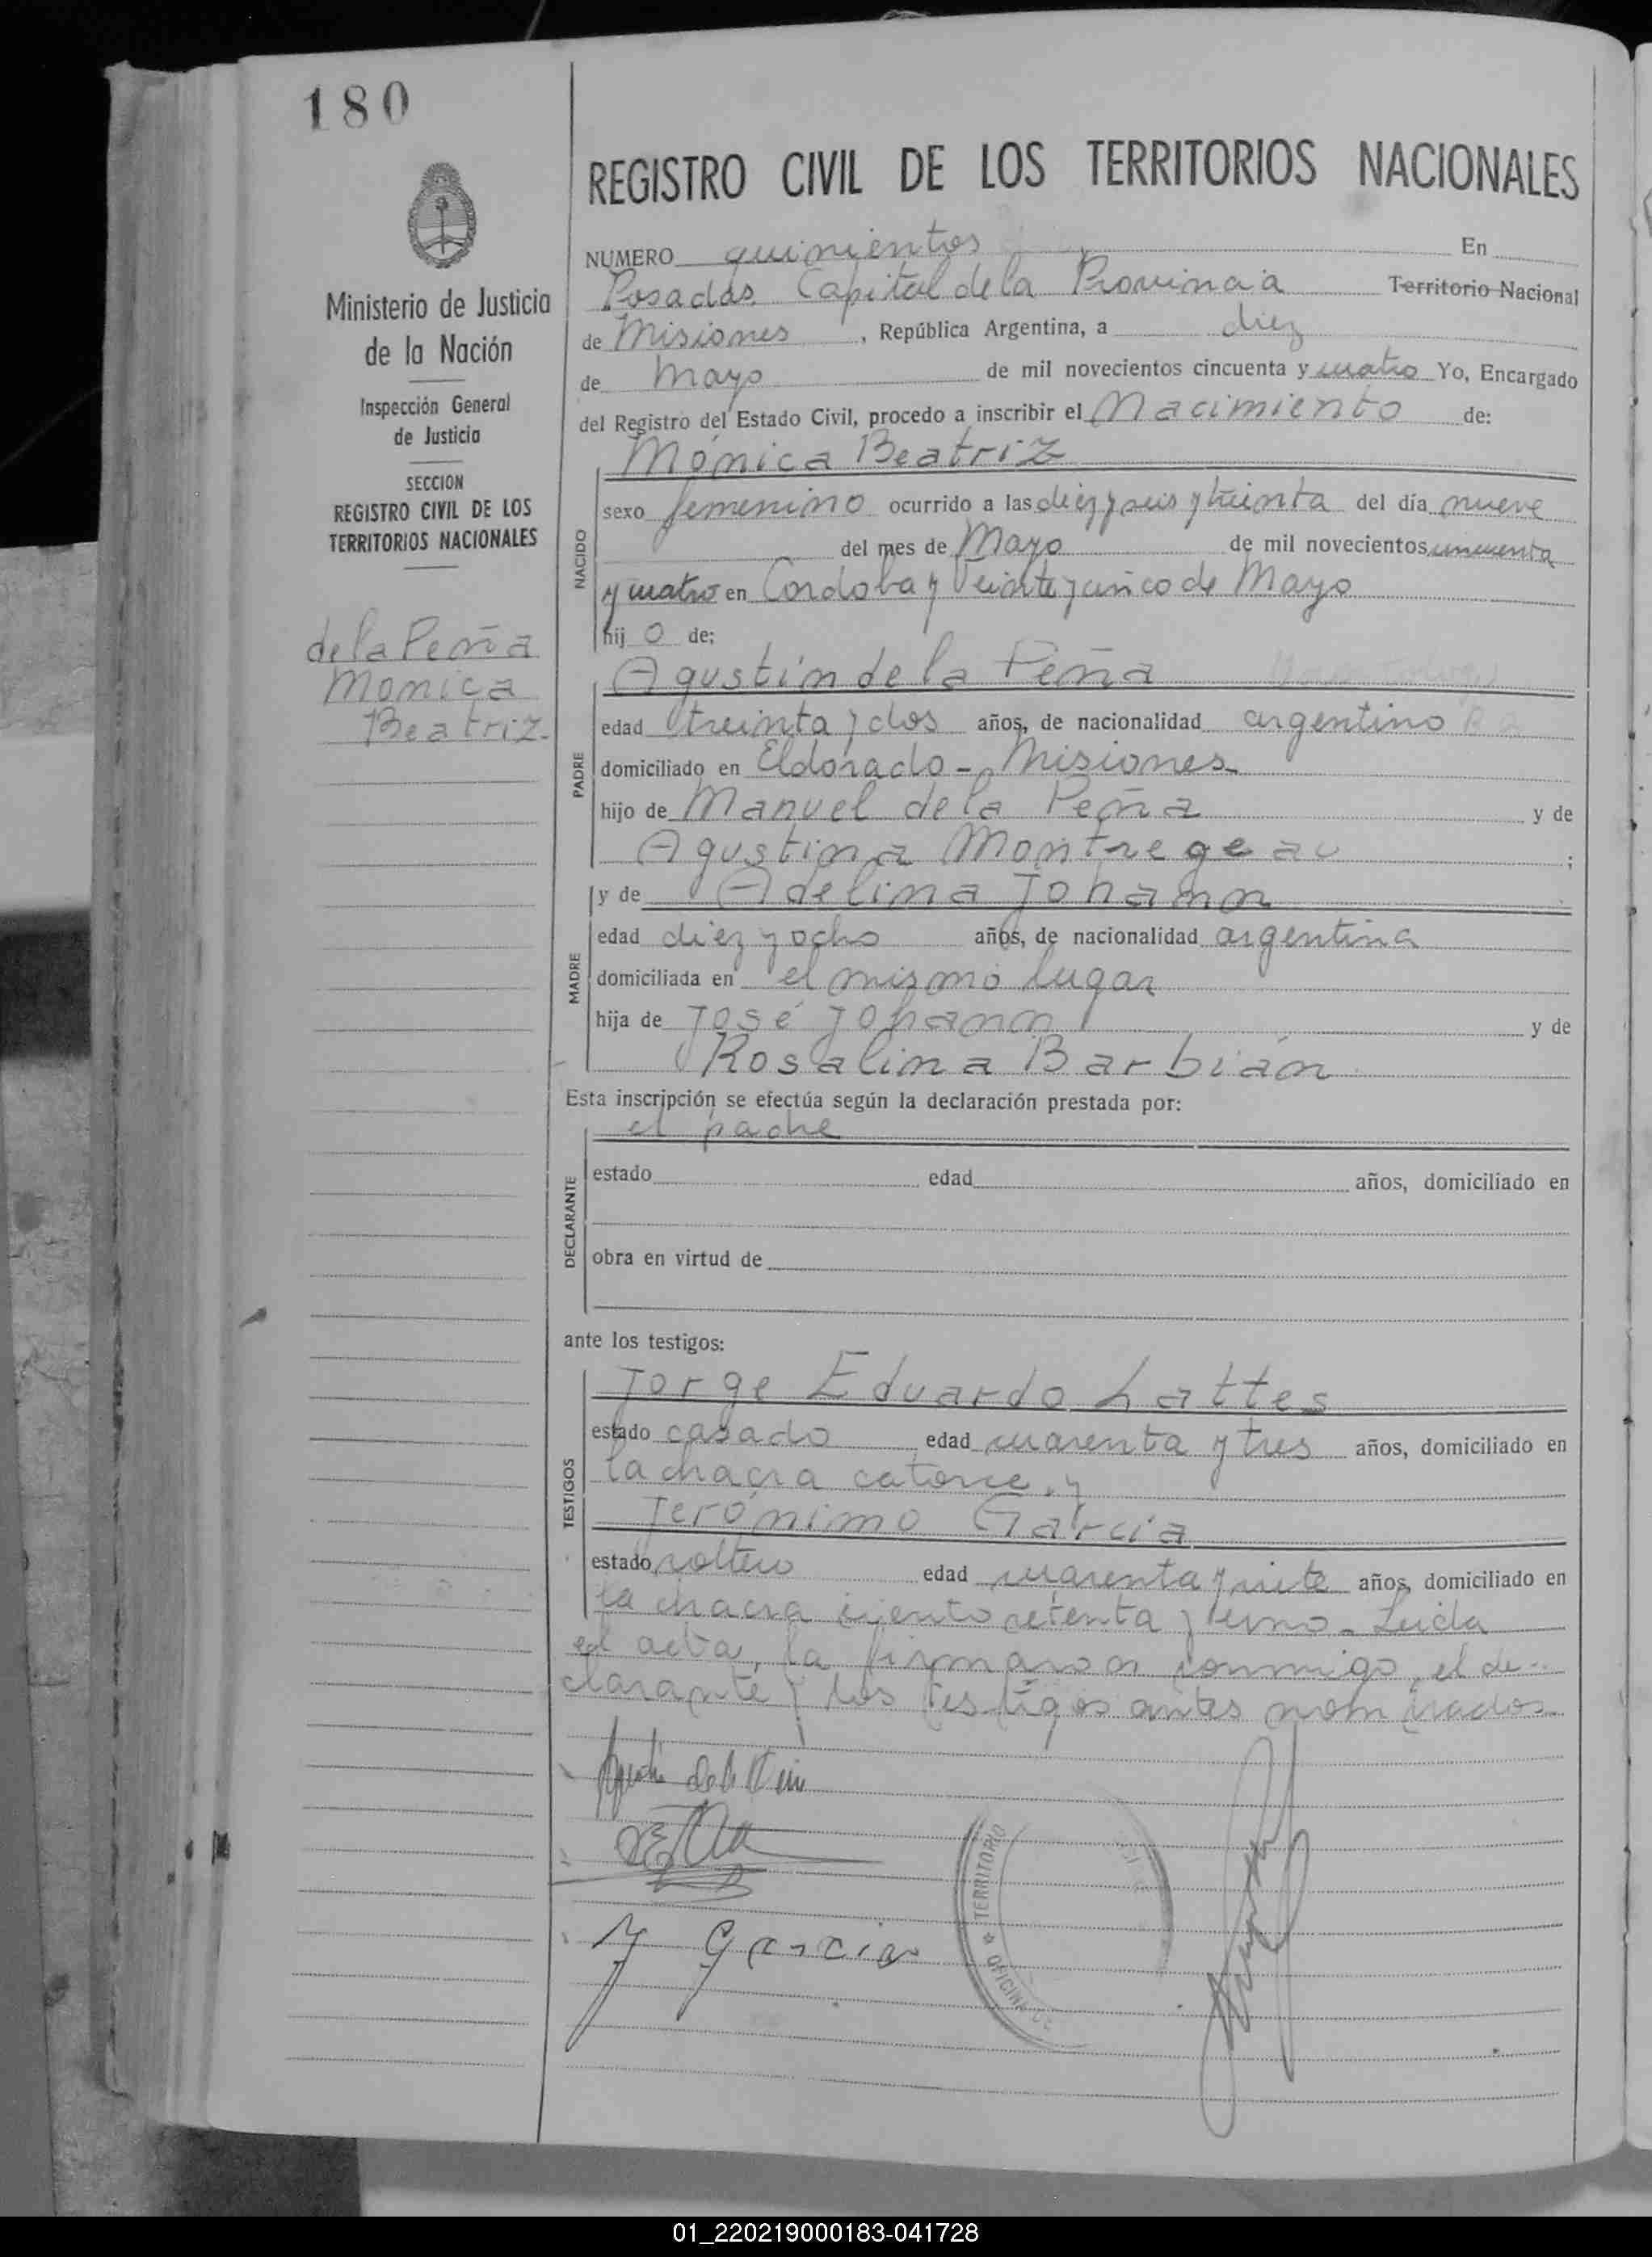 180
Ministerio de Justicia
de la Nación
Inspección General
de Justicia
SECCION
REGISTRO CIVIL DE LOS
TERRITORIOS NACIONALES
de la Peña
Monica
Beatriz.
REGISTRO CIVIL DE LOS TERRITORIOS NACIONALES
NUMERO quinientos En
Posadas Capital de la Provincia Territorio Nacional
de Misiones, República Argentina, a diez
de Mayo de mil novecientos cincuenta y cuatro Yo, Encargado
del Registro del Estado Civil, procedo a inscribir el Nacimiento de:
NACIDO
Mónica Beatriz
sexo femenino ocurrido a las diez y seis y treinta del día nueve
del mes de Mayo de mil novecientos cincuenta
y cuatro en Cordoba y Veinte y cinco de Mayo
hij o de:
PADRE
Agustín de la Peña
edad treinta y dos años, de nacionalidad argentino
domiciliado en Eldorado - Misiones
hijo de Manuel de la Peña y de
Agustina Montregeau ;
MADRE
y de Adelina Johann
edad diez y ocho años, de nacionalidad argentina
domiciliada en el mismo lugar
hija de José Johann y de
Rosalina Barbián
Esta inscripción se efectúa según la declaración prestada por:
DECLARANTE
el padre
estado edad años, domiciliado en
obra en virtud de
ante los testigos:
TESTIGOS
Jorge Eduardo Lattes
estado casado edad cuarenta y tres años, domiciliado en
la chacra catorce, y
Jerónimo Garcia
estado soltero edad cuarenta y siete años, domiciliado en
la chacra ciento setenta y uno - Leida
el acta, la firmaron conmigo, el de-
clarante y los testigos antes nombrados
J Garcia
TERRITORIO
OFICINA
01_220219000183-041728